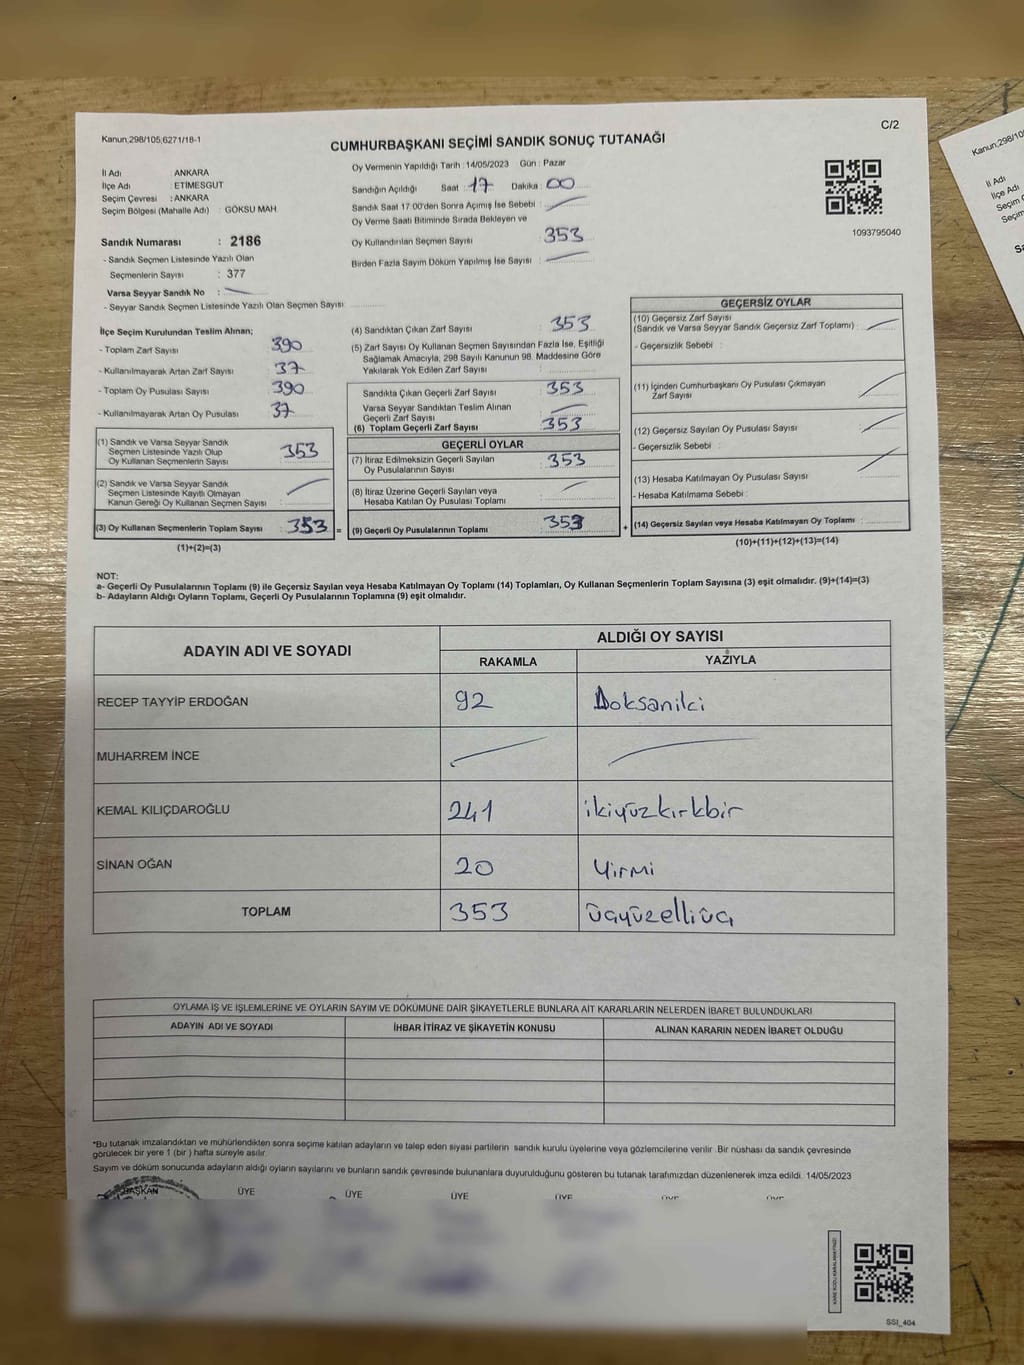 Kanun,298/105;6271/18-1
C/2
CUMHURBAŞKANI SEÇİMİ SANDIK SONUÇ TUTANAĞI
İl Adı : ANKARA
İlçe Adı : ETİMESGUT
Seçim Çevresi : ANKARA
Seçim Bölgesi (Mahalle Adı) : GÖKSU MAH.
Sandık Numarası : 2186
- Sandık Seçmen Listesinde Yazılı Olan
Seçmenlerin Sayısı : 377
Varsa Seyyar Sandık No :
- Seyyar Sandık Seçmen Listesinde Yazılı Olan Seçmen Sayısı:
Oy Vermenin Yapıldığı Tarih : 14/05/2023 Gün : Pazar
Sandığın Açıldığı Saat : 17 Dakika : 00
Sandık Saat 17:00'den Sonra Açımış İse Sebebi :
Oy Verme Saati Bitiminde Sırada Bekleyen ve
Oy Kullandırılan Seçmen Sayısı 353
Birden Fazla Sayım Döküm Yapılmış İse Sayısı :
1093795040
İlçe Seçim Kurulundan Teslim Alınan;
- Toplam Zarf Sayısı : 390
- Kullanılmayarak Artan Zarf Sayısı : 37
- Toplam Oy Pusulası Sayısı : 390
- Kullanılmayarak Artan Oy Pusulası : 37
(1) Sandık ve Varsa Seyyar Sandık
Seçmen Listesinde Yazılı Olup
Oy Kullanan Seçmenlerin Sayısı : 353
(2) Sandık ve Varsa Seyyar Sandık
Seçmen Listesinde Kayıtlı Olmayan
Kanun Gereği Oy Kullanan Seçmen Sayısı :
(3) Oy Kullanan Seçmenlerin Toplam Sayısı : 353 =
(1)+(2)=(3)
(4) Sandıktan Çıkan Zarf Sayısı : 353
(5) Zarf Sayısı Oy Kullanan Seçmen Sayısından Fazla İse, Eşitliği
Sağlamak Amacıyla, 298 Sayılı Kanunun 98. Maddesine Göre
Yakılarak Yok Edilen Zarf Sayısı :
Sandıkta Çıkan Geçerli Zarf Sayısı : 353
Varsa Seyyar Sandıktan Teslim Alınan
Geçerli Zarf Sayısı :
(6) Toplam Geçerli Zarf Sayısı : 353
GEÇERLİ OYLAR
(7) İtiraz Edilmeksizin Geçerli Sayılan
Oy Pusulalarının Sayısı : 353
(8) İtiraz Üzerine Geçerli Sayılan veya
Hesaba Katılan Oy Pusulası Toplamı :
(9) Geçerli Oy Pusulalarının Toplamı : 353 +
GEÇERSİZ OYLAR
(10) Geçersiz Zarf Sayısı
(Sandık ve Varsa Seyyar Sandık Geçersiz Zarf Toplamı) :
- Geçersizlik Sebebi :
(11) İçinden Cumhurbaşkanı Oy Pusulası Çıkmayan
Zarf Sayısı :
(12) Geçersiz Sayılan Oy Pusulası Sayısı :
- Geçersizlik Sebebi :
(13) Hesaba Katılmayan Oy Pusulası Sayısı :
- Hesaba Katılmama Sebebi :
(14) Geçersiz Sayılan veya Hesaba Katılmayan Oy Toplamı :
(10)+(11)+(12)+(13)=(14)
NOT:
a- Geçerli Oy Pusulalarının Toplamı (9) ile Geçersiz Sayılan veya Hesaba Katılmayan Oy Toplamı (14) Toplamları, Oy Kullanan Seçmenlerin Toplam Sayısına (3) eşit olmalıdır. (9)+(14)=(3)
b- Adayların Aldığı Oyların Toplamı, Geçerli Oy Pusulalarının Toplamına (9) eşit olmalıdır.
ADAYIN ADI VE SOYADI
ALDIĞI OY SAYISI
RAKAMLA YAZIYLA
RECEP TAYYİP ERDOĞAN 92 Doksaniki
MUHARREM İNCE
KEMAL KILIÇDAROĞLU 241 ikiyüzkırkbir
SİNAN OĞAN 20 Yirmi
TOPLAM 353 üçyüzelliüç
OYLAMA İŞ VE İŞLEMLERİNE VE OYLARIN SAYIM VE DÖKÜMÜNE DAİR ŞİKAYETLERLE BUNLARA AİT KARARLARIN NELERDEN İBARET BULUNDUKLARI
ADAYIN ADI VE SOYADI İHBAR İTİRAZ VE ŞİKAYETİN KONUSU ALINAN KARARIN NEDEN İBARET OLDUĞU
*Bu tutanak imzalandıktan ve mühürlendikten sonra seçime katılan adayların ve talep eden siyasi partilerin sandık kurulu üyelerine veya gözlemcilerine verilir. Bir nüshası da sandık çevresinde
görülecek bir yere 1 (bir) hafta süreyle asılır.
Sayım ve döküm sonucunda adayların aldığı oyların sayılarını ve bunların sandık çevresinde bulunanlara duyurulduğunu gösteren bu tutanak tarafımızdan düzenlenerek imza edildi. 14/05/2023
BAŞKAN ÜYE ÜYE ÜYE ÜYE ÜYE ÜYE
SSI_404
Kanun,298/105
İl Adı
İlçe Adı
Seçim
Seçim